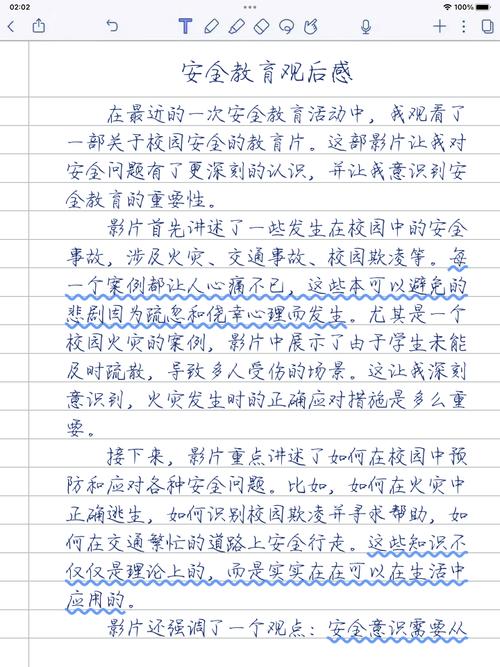 02:02
100%
安全教育观后感
在最近的一次安全教育活动中，我观看了
一部关于校园安全的教育片。这部影片让我对
安全问题有了更深刻的认识，并让我意识到安
全教育的重要性。
影片首先讲述了一些发生在校园中的安全
事故，涉及火灾、交通事故、校园欺凌等。每
一个案例都让人心痛不已，这些本可以避免的
悲剧因为疏忽和侥幸心理而发生。尤其是一个
校园火灾的案例，影片中展示了由于学生未能
及时疏散，导致多人受伤的场景。这让我深刻
意识到，火灾发生时的正确应对措施是多么重
要。
接下来，影片重点讲述了如何在校园中预
防和应对各种安全问题。比如，如何在火灾中
正确逃生，如何识别校园欺凌并寻求帮助，如
何在交通繁忙的道路上安全行走。这些知识不
仅仅是理论上的，而是实实在在可以在生活中
应用的。
影片还强调了一个观点：安全意识需要从